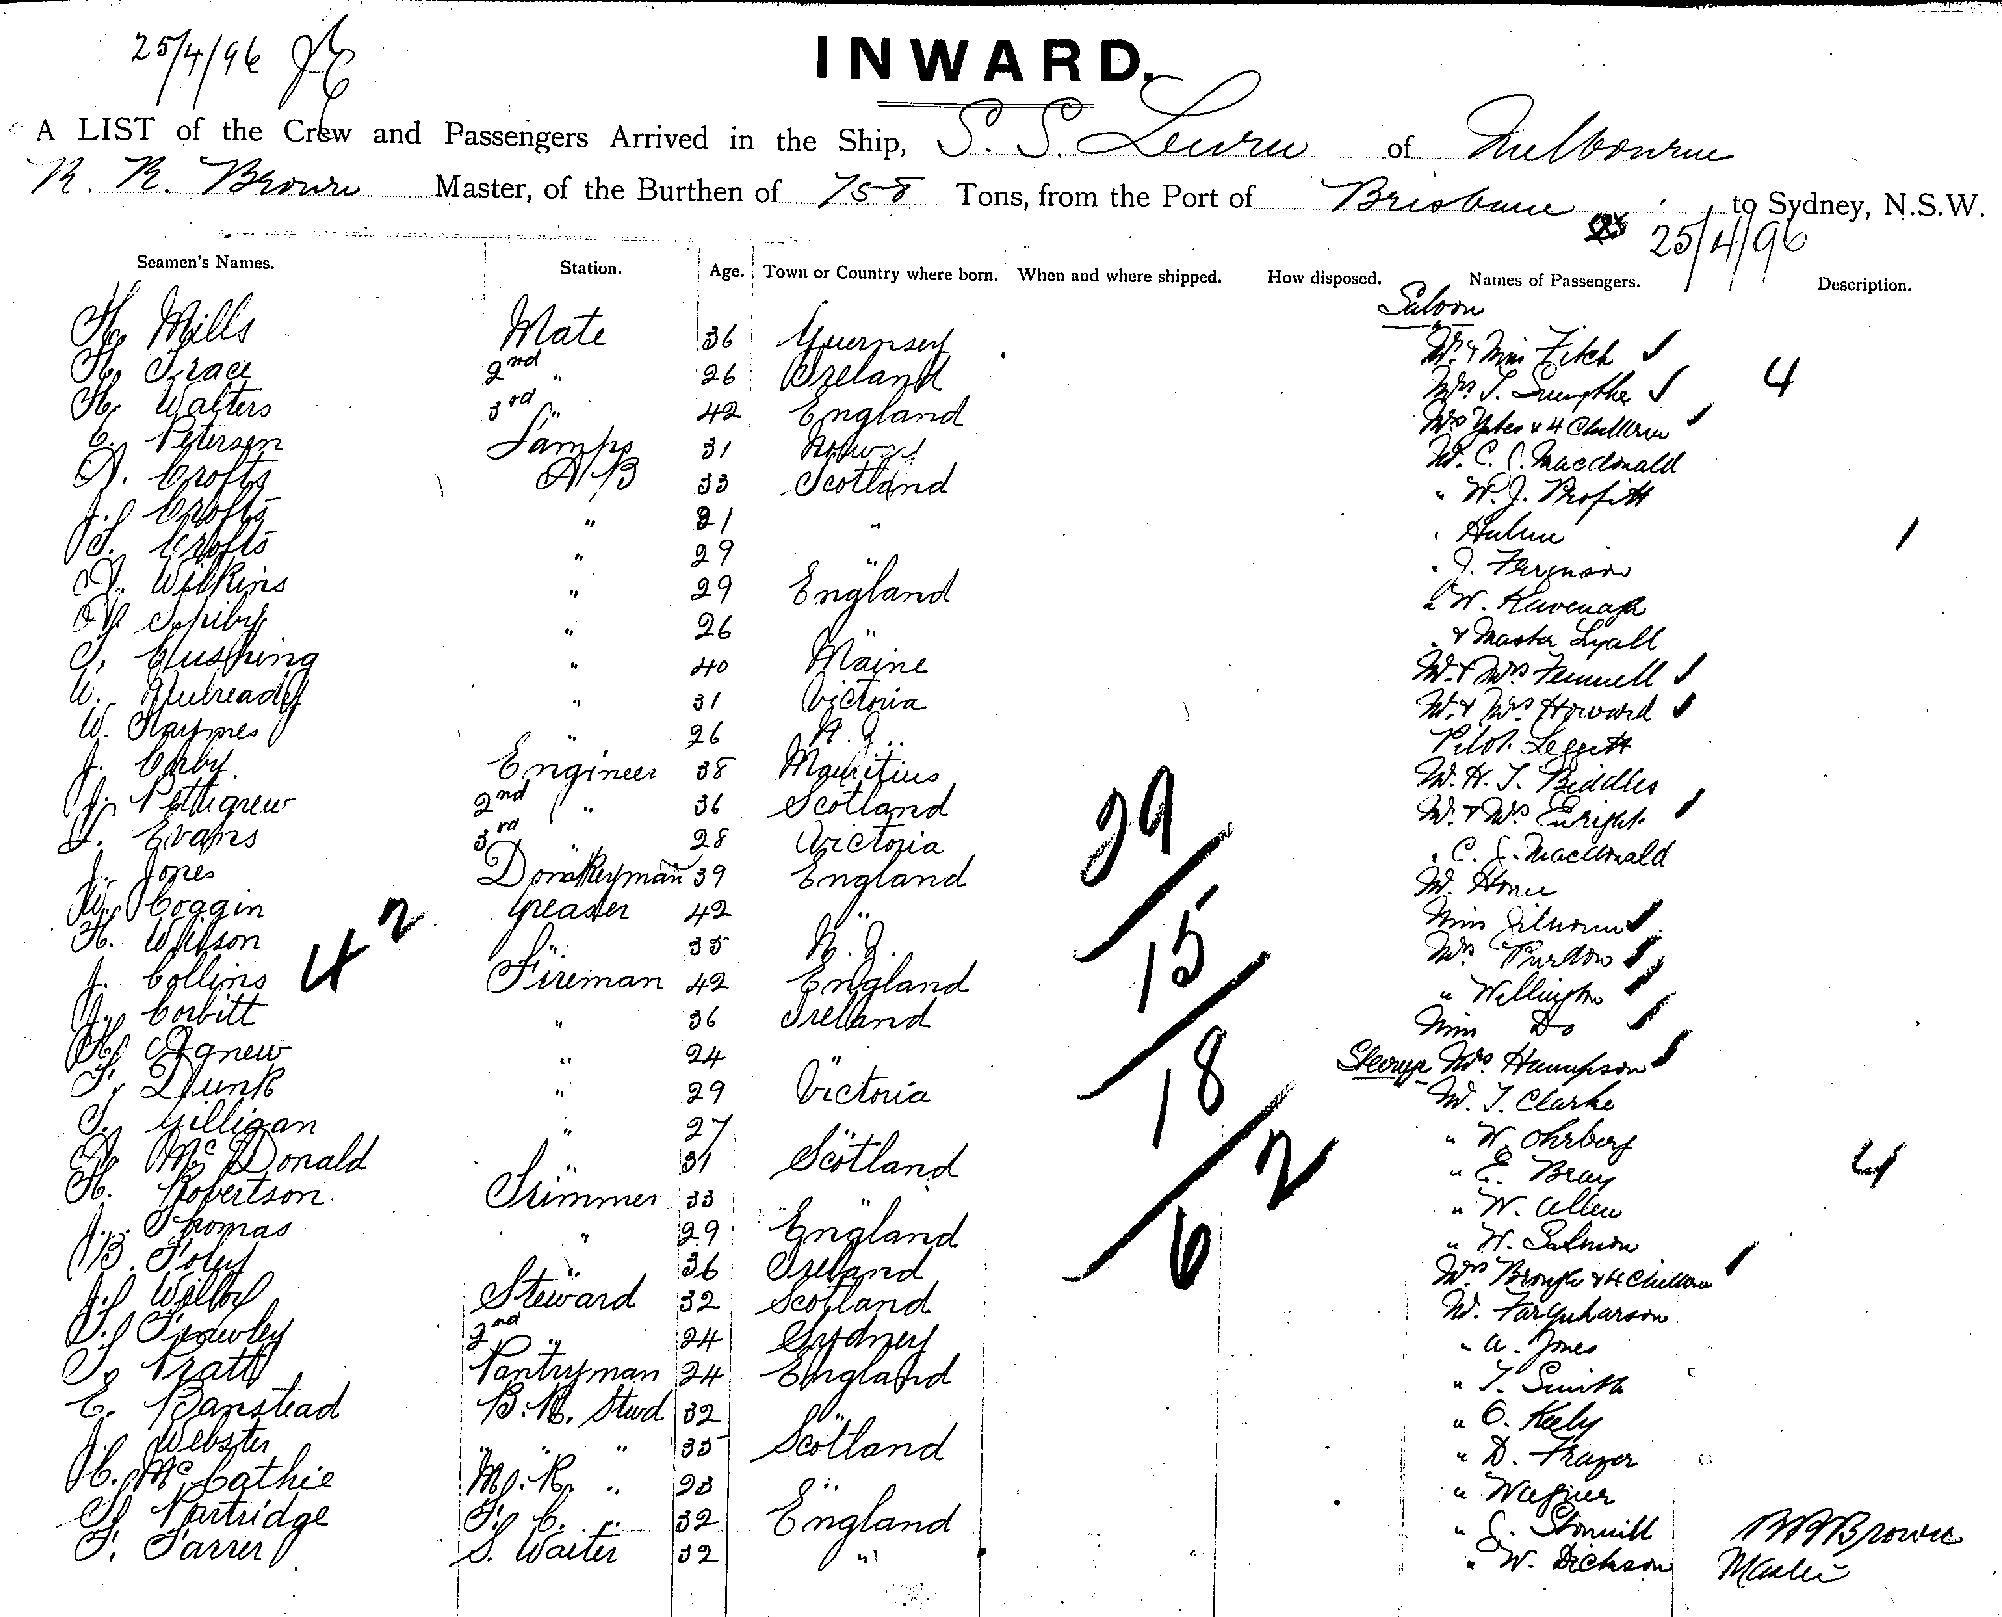 25/4/96
INWARD.
A LIST of the Crew and Passengers Arrived in the Ship, S. S. of Melbourne
R. R. Brown Master, of the Burthen of 758 Tons, from the Port of Brisbane to Sydney, N.S.W.
25/4/96
Seamen's Names. Station. Age. Town or Country where born. When and where shipped. How disposed. Names of Passengers. Description.
Saloon
H. Mills Mate 36 Guernsey Mr & Miss Fitch
H. Grace 2nd " 26 Ireland Mrs 4
H. Walters 3rd " 42 England Mrs Yates & 4 Children
E. Petersen Lamps 31 Norway Mr. C. S. Macdonald
A. Crofts AB 33 Scotland " W. J. Profitt
J. Crofts " 21 " Hulme 1
Crofts " 29 " J. Ferguson
A. Wilkins " 29 England " W. Kavenagh
Spiby " 26 " & Master Lyall
Cushing " 40 Maine Mr & Mrs Fennell
W. Mulready " 31 Victoria Mr & Mrs Howard
W. Haymes " 26 N. Z. Pilot Leggett
J. Corby Engineer 38 Mauritius Mr. H. T. Biddles
J. Pettigrew 2nd " 36 Scotland Mr & Mrs Enright
Evans 3rd " 28 Victoria " C. S. MacDonald
J. Jones Donkeyman 39 England Mr. Horne
W. Coggin Greaser 42 " Miss
H. Wilson " 35 N. Z. Mrs Purdon
J. Collins Fireman 42 England " Wellington
J. Corbitt " 36 Ireland Miss Do
Agnew " 24 " Steerage Mrs Thompson
Dunk " 29 Victoria Mr. T. Clarke
Gilligan " 27 " " W. Ohrberg
A. McDonald " 31 Scotland " E. Bray 4
H. Robertson Trimmer 33 " " W. Allen
J. Thomas " 29 England " W. Salmon
B. Foley " 36 Ireland Mrs Brough & 4 Children
J. Wilby Steward 32 Scotland Mr. Farquharson
Frawley 2nd " 24 Sydney " A. Jones
Pratt Pantryman 24 England " T. Smith
E. Banstead B. R. Stwd 32 " " O. Keely
J. Webster " " " 35 Scotland " D. Frazer
McCathie Ms. R. " 23 " " Wagner
Partridge F. C. " 32 England " Stonnill
F. Farrer S. Waiter 32 " " W. Dickson
42
29/15/18/6 2
R R Brown
Master